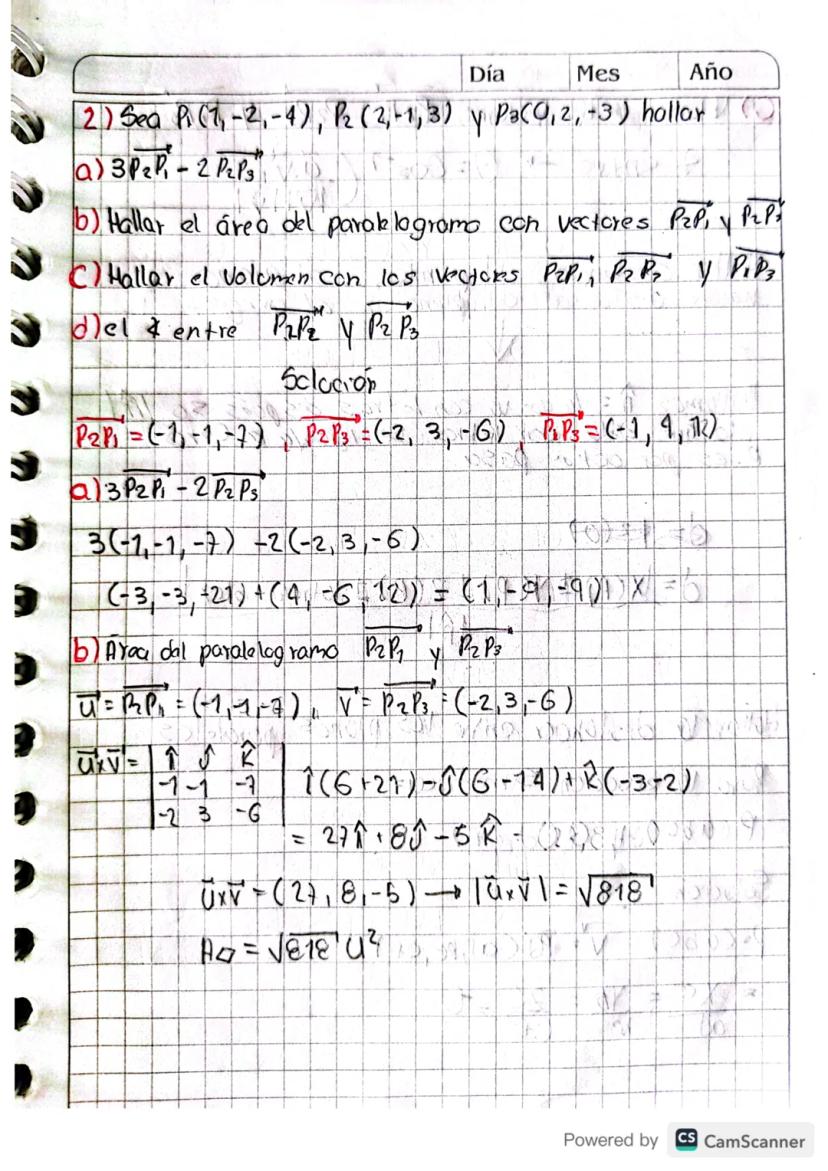 Día Mes Año
2) Sea P₁(1, -2, -4), P₂(2, -1, 3) y P₃(0, 2, -3) hallar
a) 3P₂P₁ - 2P₂P₃
b) Hallar el área del paralelogramo con vectores P₂P₁ y P₂P₃
c) Hallar el volumen con los vectores P₂P₁, P₂P₃ y P₁P₃
d) el ∡ entre P₂P₂ y P₂P₃
Solución
P₂P₁ = (-1, -1, -7), P₂P₃ = (-2, 3, -6), P₁P₃ = (-1, 4, 12)
a) 3P₂P₁ - 2P₂P₃
3(-1, -1, -7) - 2(-2, 3, -6)
(-3, -3, -21) + (4, -6, 12) = (1, -9, -9)
b) Área del paralelogramo P₂P₁ y P₂P₃
u = P₂P₁ = (-1, -1, -7), v = P₂P₃ = (-2, 3, -6)
uxv = | î ĵ k̂ |
-1 -1 -7 | î(6+21) - ĵ(6-14) + k̂(-3-2)
-2 3 -6
= 27î + 8ĵ - 5k̂
uxv = (27, 8, -5) → |uxv| = √818
A▱ = √818 u²
Powered by CS CamScanner